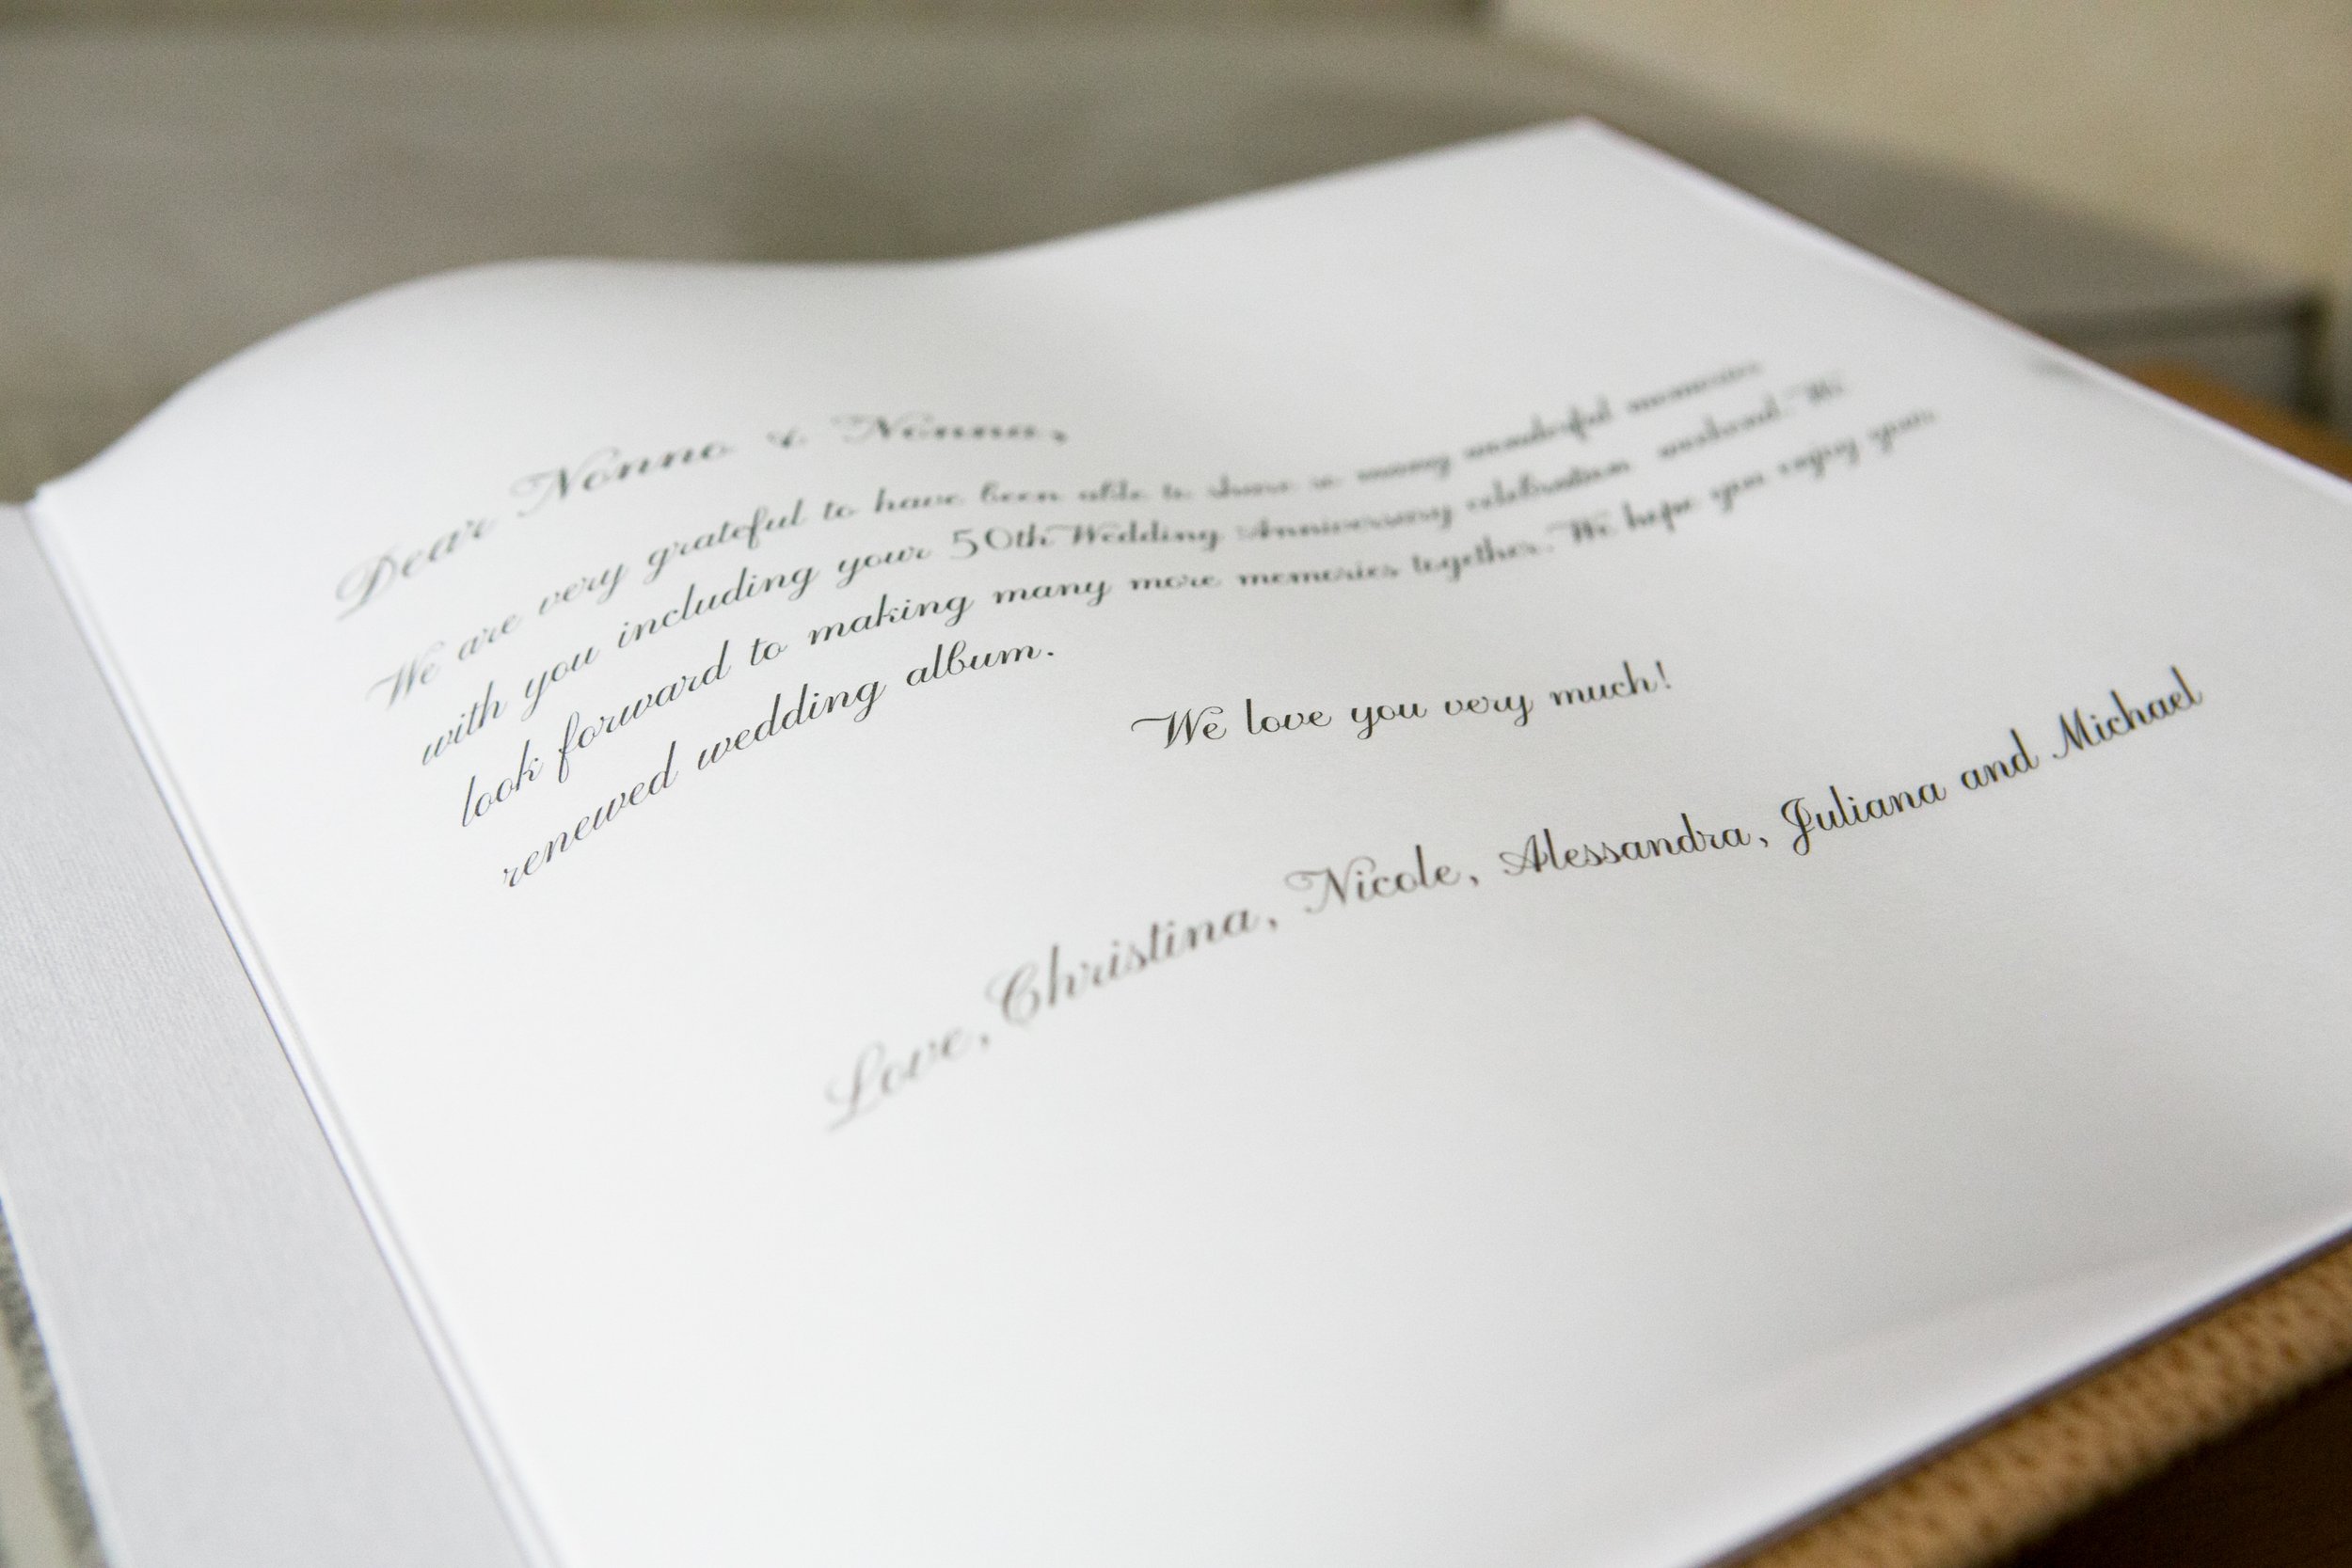 Dear Nonno & Nonna,
We are very grateful to have been able to share so many wonderful memories
with you including your 50th Wedding Anniversary celebration weekend. We
look forward to making many more memories together. We hope you enjoy your
renewed wedding album.
We love you very much!
Love, Christina, Nicole, Alessandra, Juliana and Michael